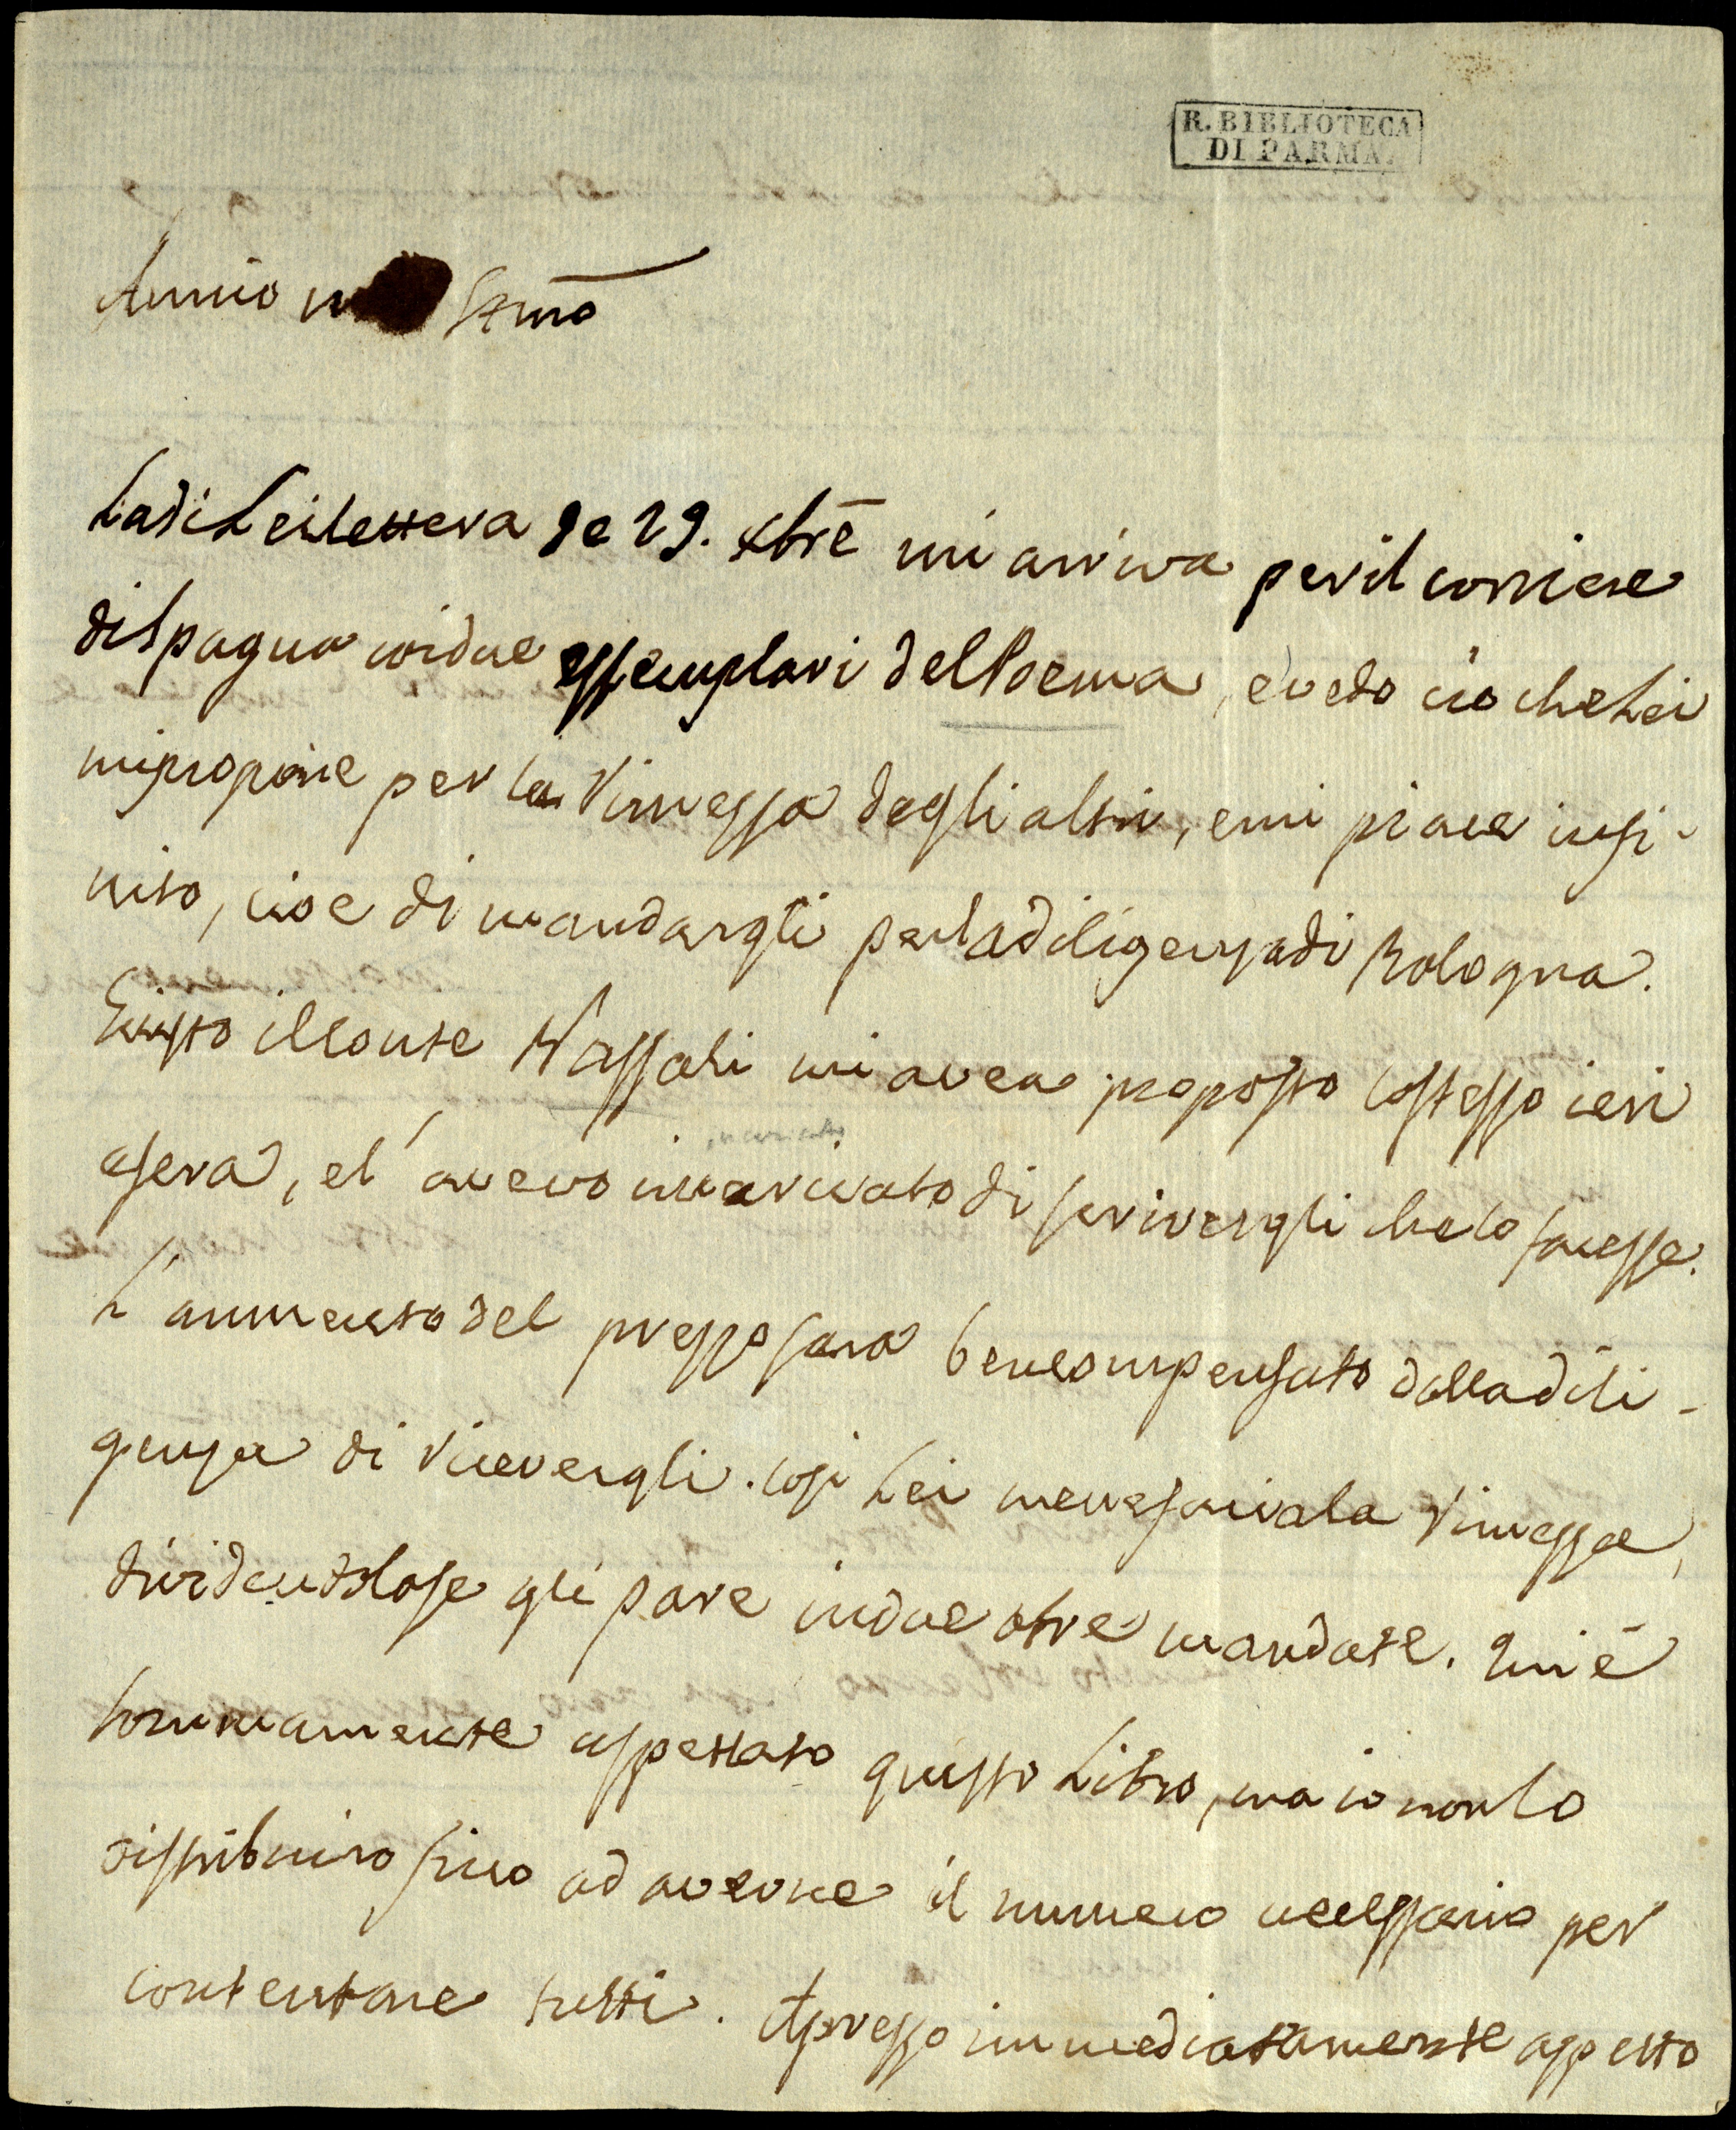 R. BIBLIOTECA
DI PARMA.
Amico Stmō
La di Lei lettera de 29. xbrē mi arriva per il corriere
di Spagna coi due essemplari del Poema, e vedo ciò che Lei
mi propone per la rimessa degli altri, e mi piace infi-
nito, cioe di mandargli per la diligenza di Bologna.
Giusto il Conte Massoli mi avea proposto lo stesso ieri
asera, e l'avevo incaricato di scrivergli che lo facesse.
L'aumento del prezzo sarà ben compensato dalla dili-
genza di ricevergli. Così Lei me ne faccia la rimessa,
dividendola se gli pare in due o tre mandate. Qui è
sommamente aspettato questo Libro, ma io non lo
distribuirò fino ad averne il numero necessario per
contentare tutti. Apresso immediatamente aspetto